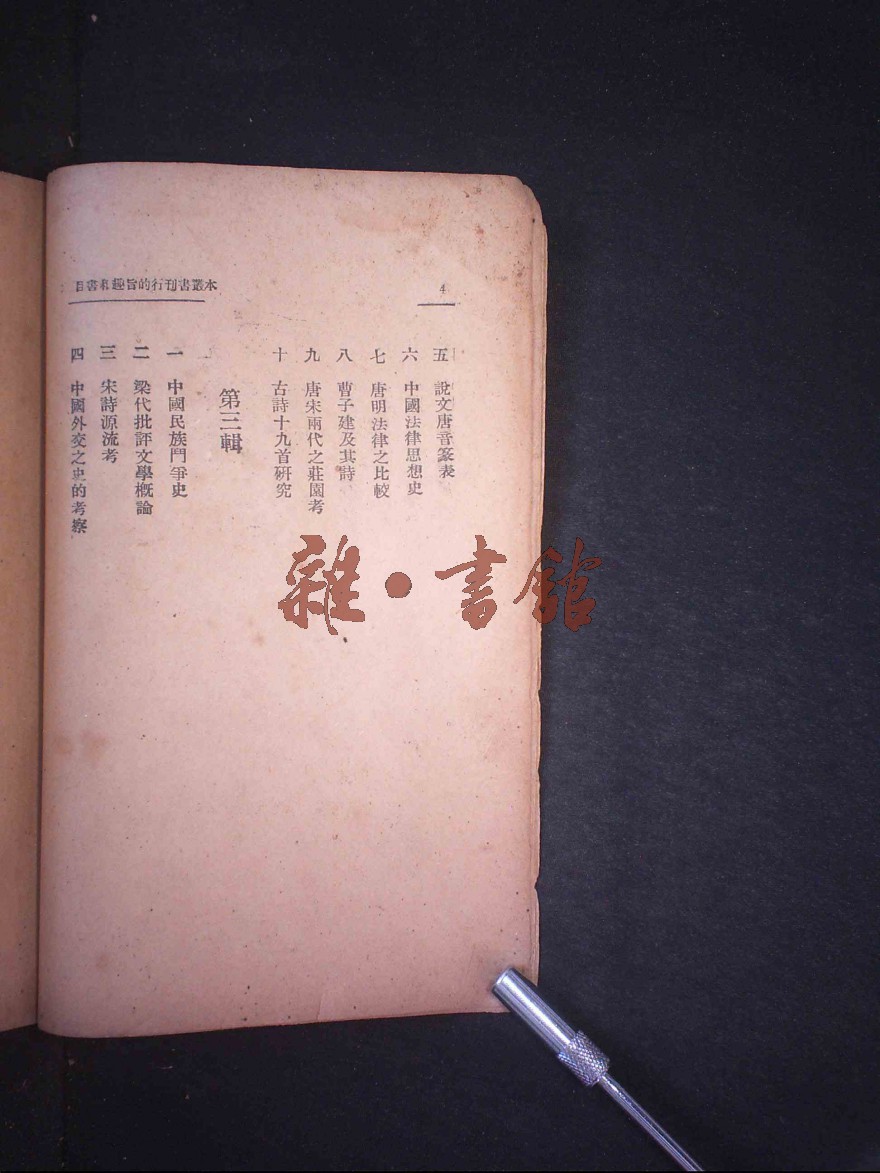 本叢書刊行的旨趣和書目
4
五 說文唐音篆表
六 中國法律思想史
七 唐明法律之比較
八 曹子建及其詩
九 唐宋兩代之莊園考
十 古詩十九首研究
第三輯
一 中國民族鬥爭史
二 梁代批評文學概論
三 宋詩源流考
四 中國外交之史的考察
雜·書館